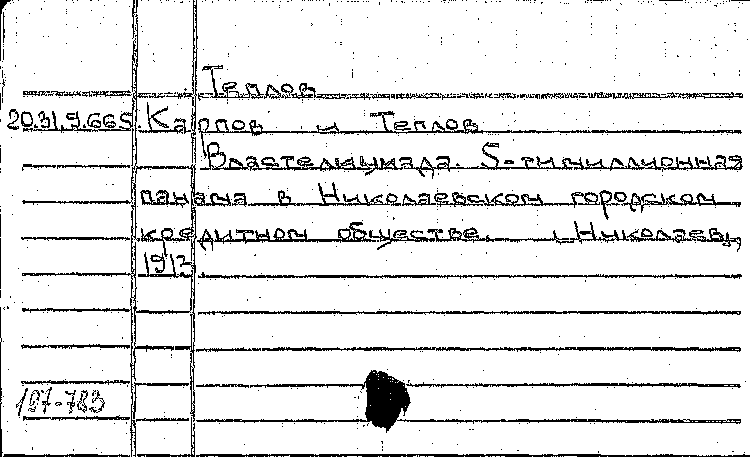 Теплов
20.31.9.665. Карпов и Теплов
Властелициада. 5-тимиллионная
панама в Николаевском городском
кредитном обществе. Николаев,
1912.
197-783